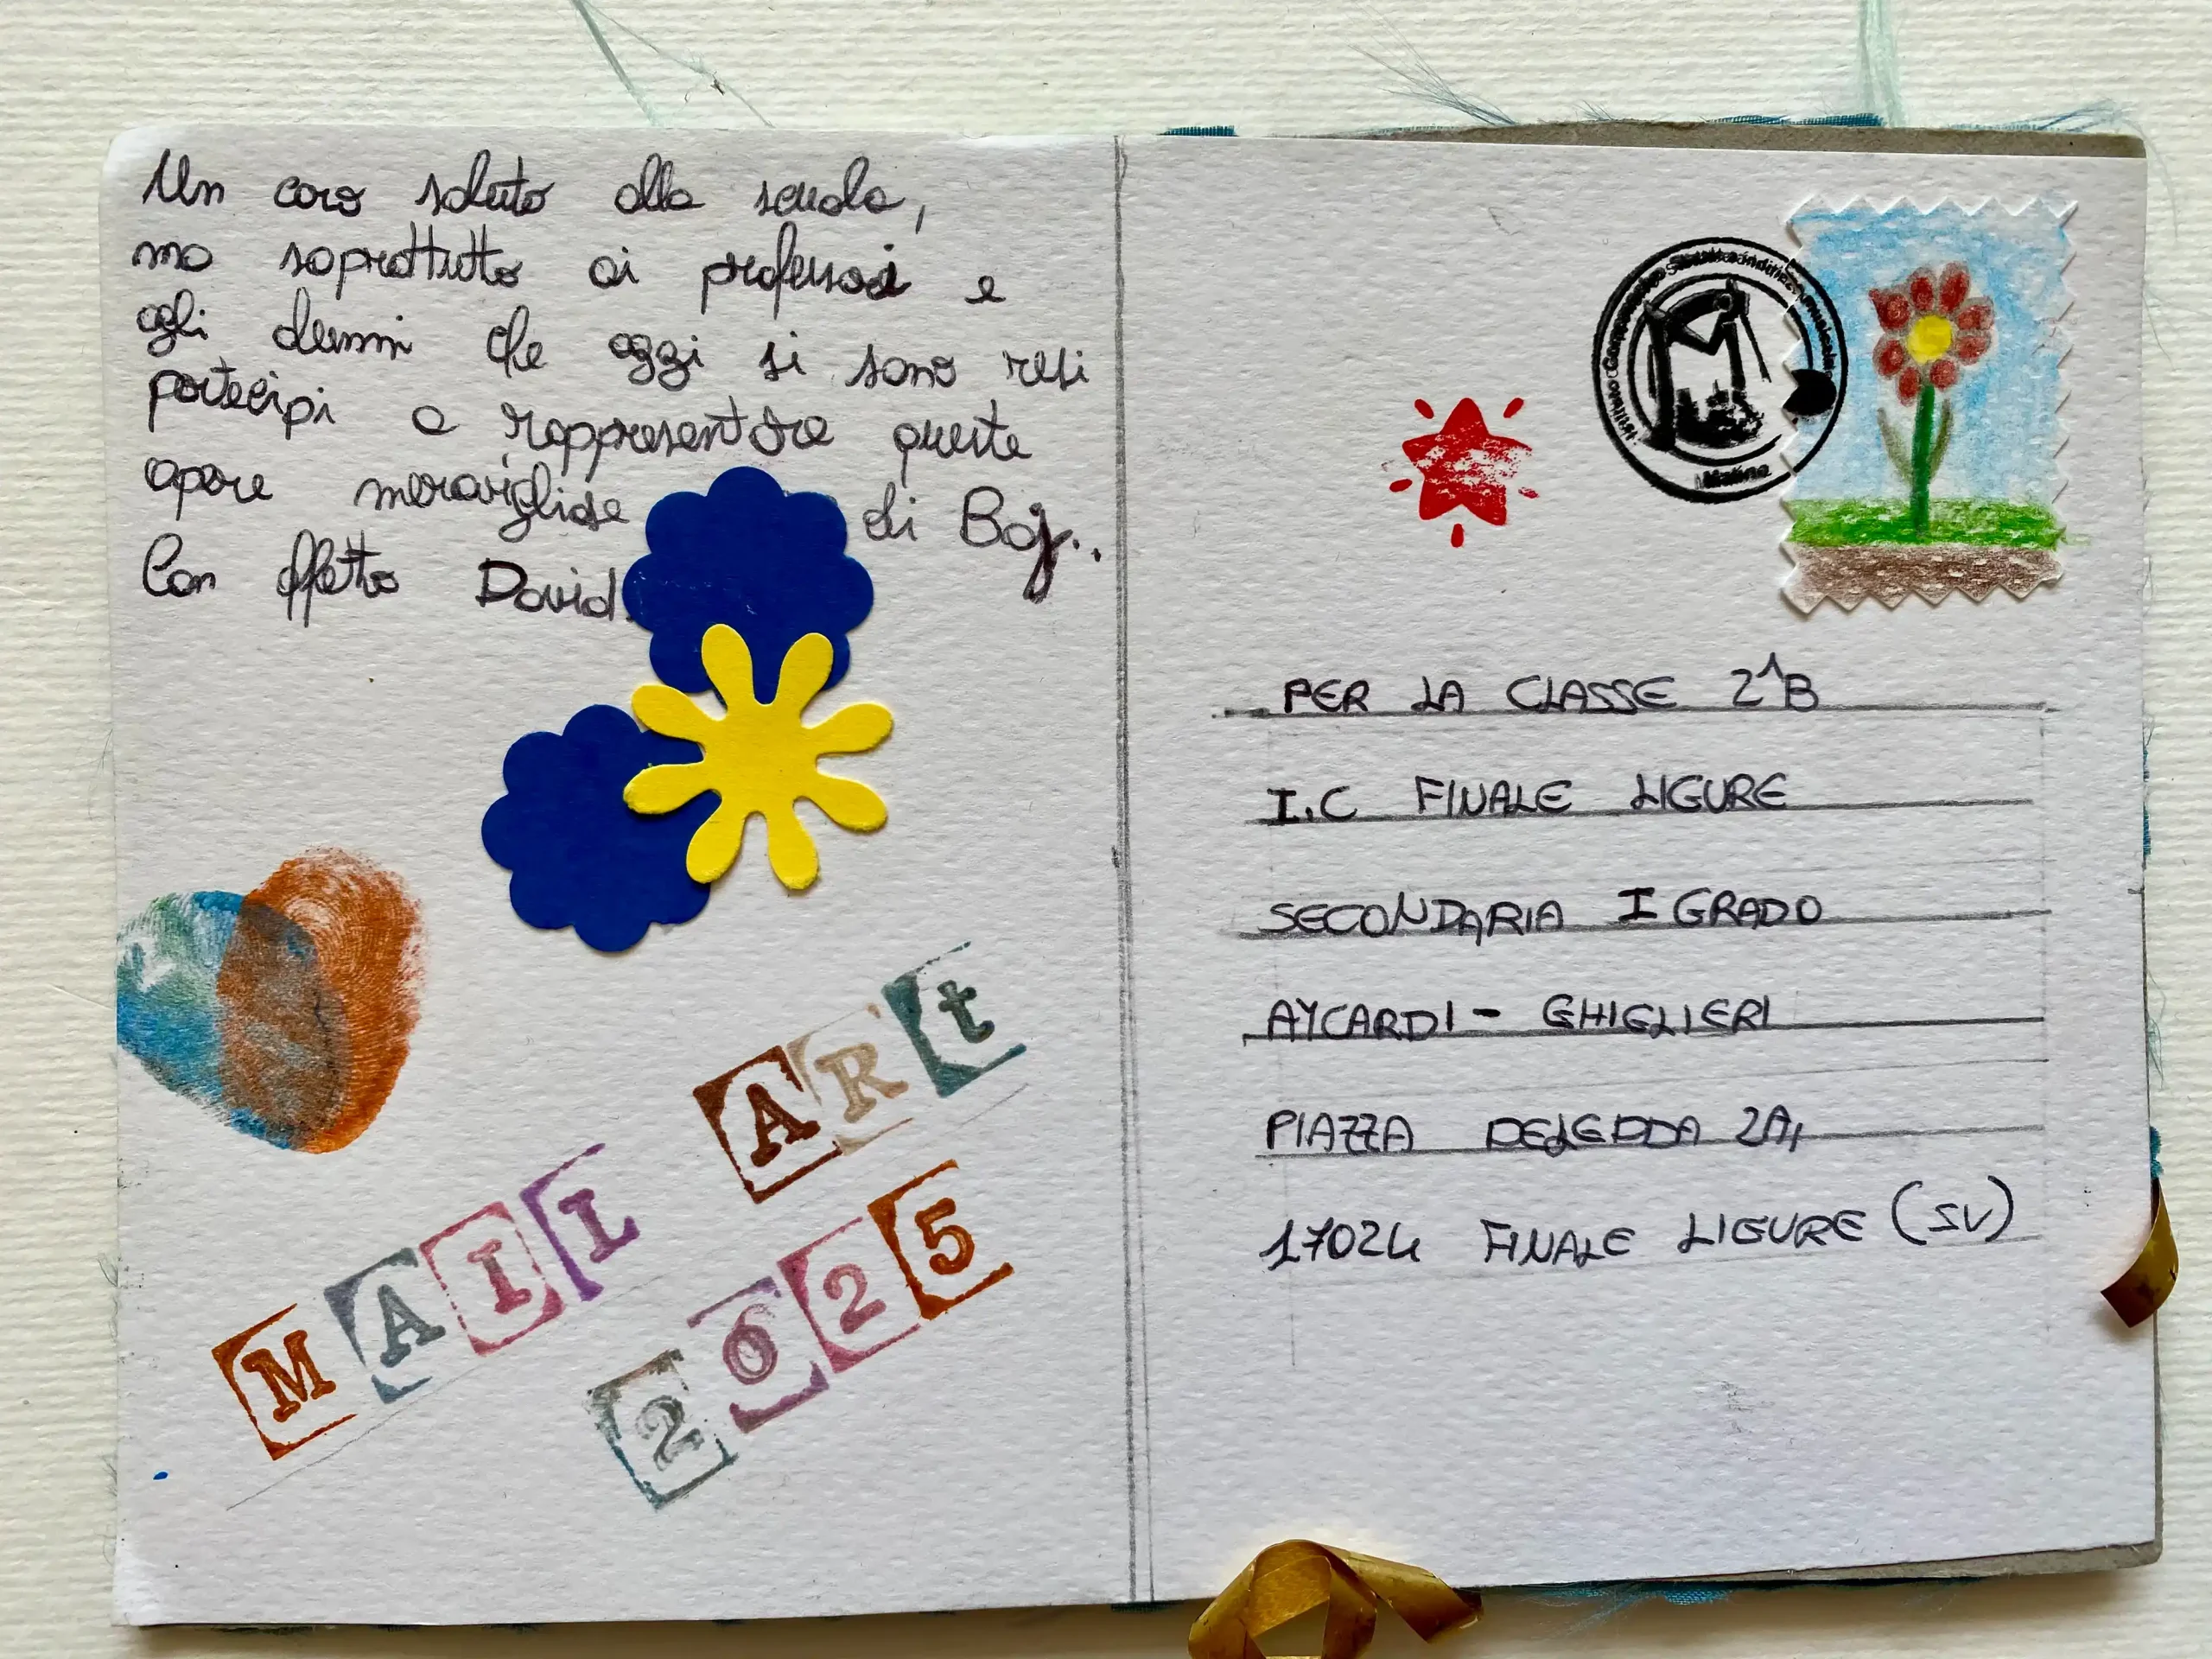 Un caro saluto alla scuola,
ma soprattutto ai professori e
agli alunni che oggi si sono resi
partecipi a rappresentare queste
opere meravigliose di Baj..
Con affetto David.
MAIL ARt
2025
Matino
PER LA CLASSE 2^B
I.C FINALE LIGURE
SECONDARIA I GRADO
AYCARDI - GHIGLIERI
PIAZZA DELEDDA 2A,
17024 FINALE LIGURE (SV)